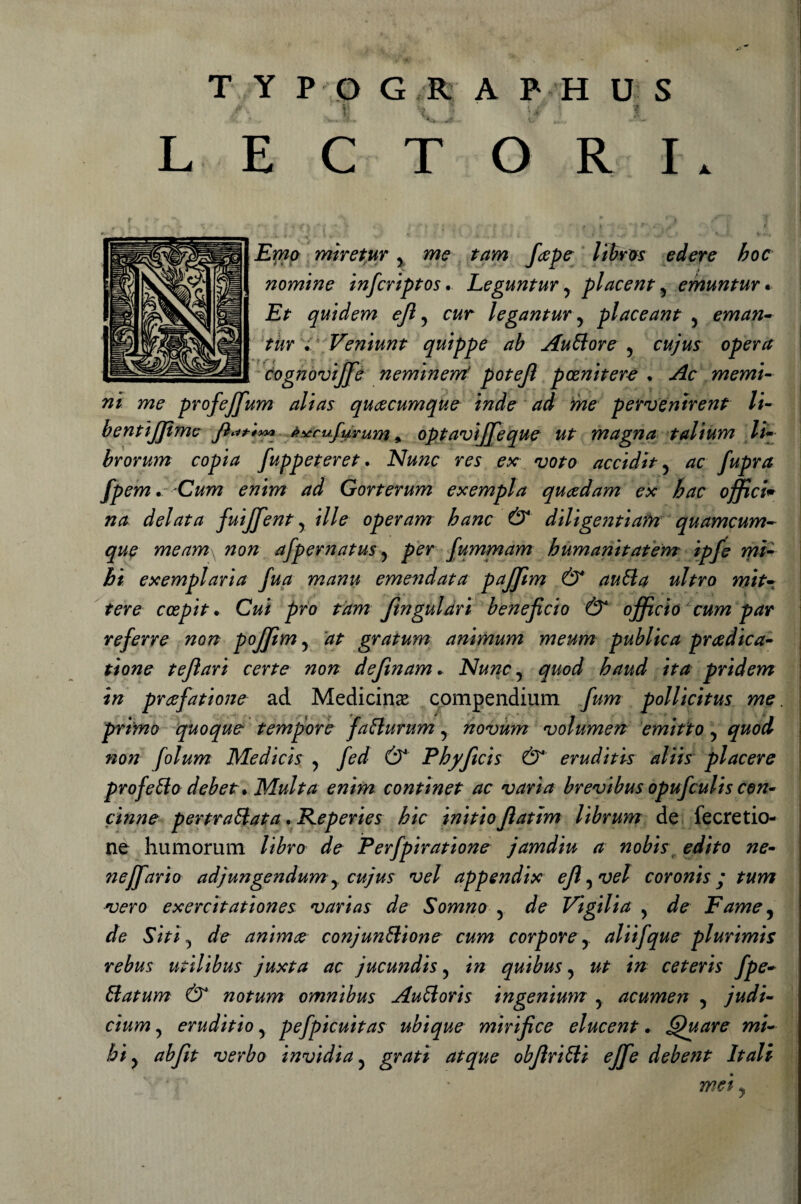 TYPOGRAPHUS
LECTORI.
NEmo miretur, me tam sæpe libros edere hoc
nomine inscriptos. Leguntur, placent, emuntur.
Et quidem est, cur legantur, placeant, eman-
tur. Veniunt quippe ab Auctore, cujus opera
cognovisse neminem potest pœnitere. Ac memi-
ni me professum alias quæcumque inde ad me pervenirent li-
bentissime statim excusurum, optavisseque ut magna talium li-
brorum copia suppeteret. Nunc res ex voto accidit, ac supra
spem. Cum enim ad Gorterum exempla quædam ex hac offici-
na delata fuissent, ille operam hanc & diligentiam quamcum-
que meam non aspernatus, per summam humanitatem ipse mi-
hi exemplaria sua manu emendata passim & aucta ultro mit-
tere cœpit. Cui pro tam singulari beneficio & officio cum par
referre non possim, at gratum animum meum publica prædica-
tione testari certe non desinam. Nunc, quod haud ita pridem
in præfatione ad Medicinæ compendium sum pollicitus me
primo quoque tempore facturum, novum volumen emitto, quod
non solum Medicis, sed & Physicis & eruditis aliis placere
profecto debet. Multa enim continet ac varia brevibus opusculis con-
cinne pertractata. Reperies hic initio statim librum de secretio-
ne humorum libro de Perspiratione jamdiu a nobis edito ne-
nessario adjungendum, cujus vel appendix est, vel coronis; tum
vero exercitationes varias de Somno, de Vigilia, de Fame,
de Siti, de animæ conjunctione cum corpore, aliisque plurimis
rebus utilibus juxta ac jucundis, in quibus, ut in ceteris spe-
ctatum & notum omnibus Auctoris ingenium, acumen, judi-
cium, eruditio, pespicuitas ubique mirifice elucent. Quare mi-
hi, absit verbo invidia, grati atque obstricti esse debent Itali
mei,